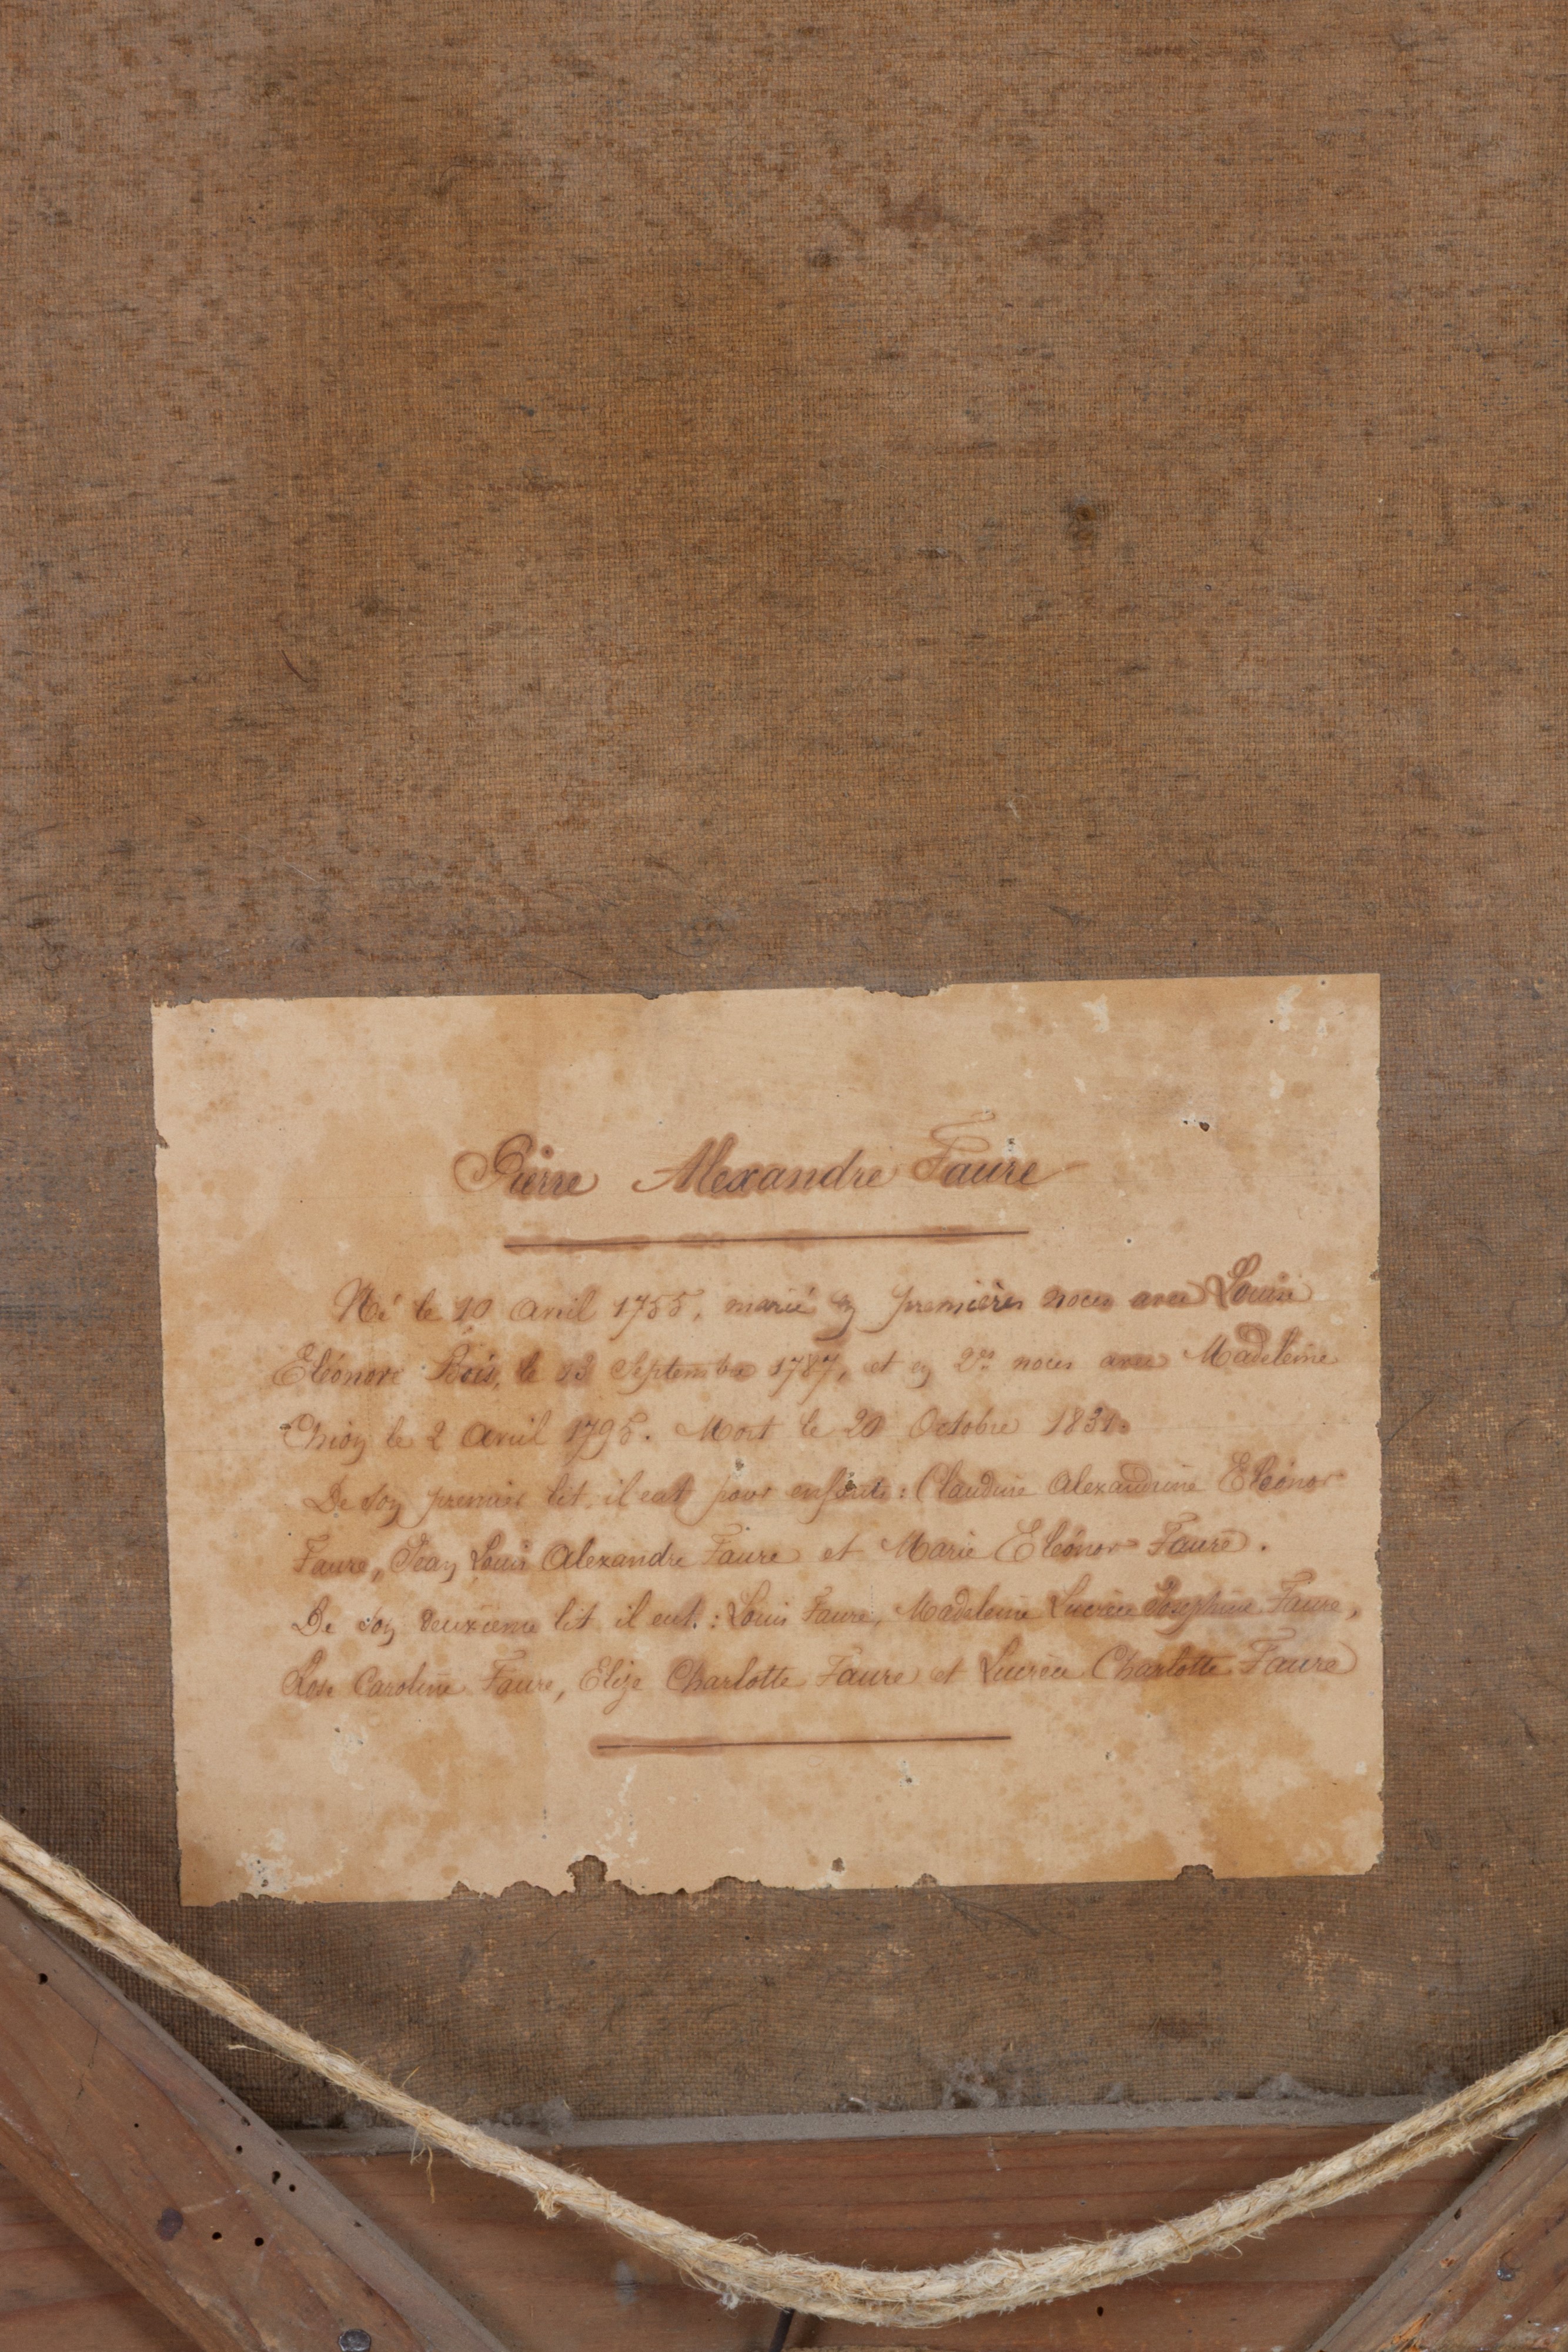 Pierre Alexandre Faure
Né le 10 avril 1755, marié en premières noces avec Louise
Eléonore Bois, le 13 Septembre 1787, et en 2es noces avec Madeleine
Chion le 2 avril 1795. Mort le 20 Octobre 1831.
De son premier lit, il eut pour enfants : Claudine Alexandrine Eléonor
Faure, Jean Louis Alexandre Faure et Marie Eléonor Faure.
De son deuxième lit il eut : Louis Faure, Madeleine Lucrèce Joséphine Faure,
Rose Caroline Faure, Elize Charlotte Faure et Lucrèce Charlotte Faure